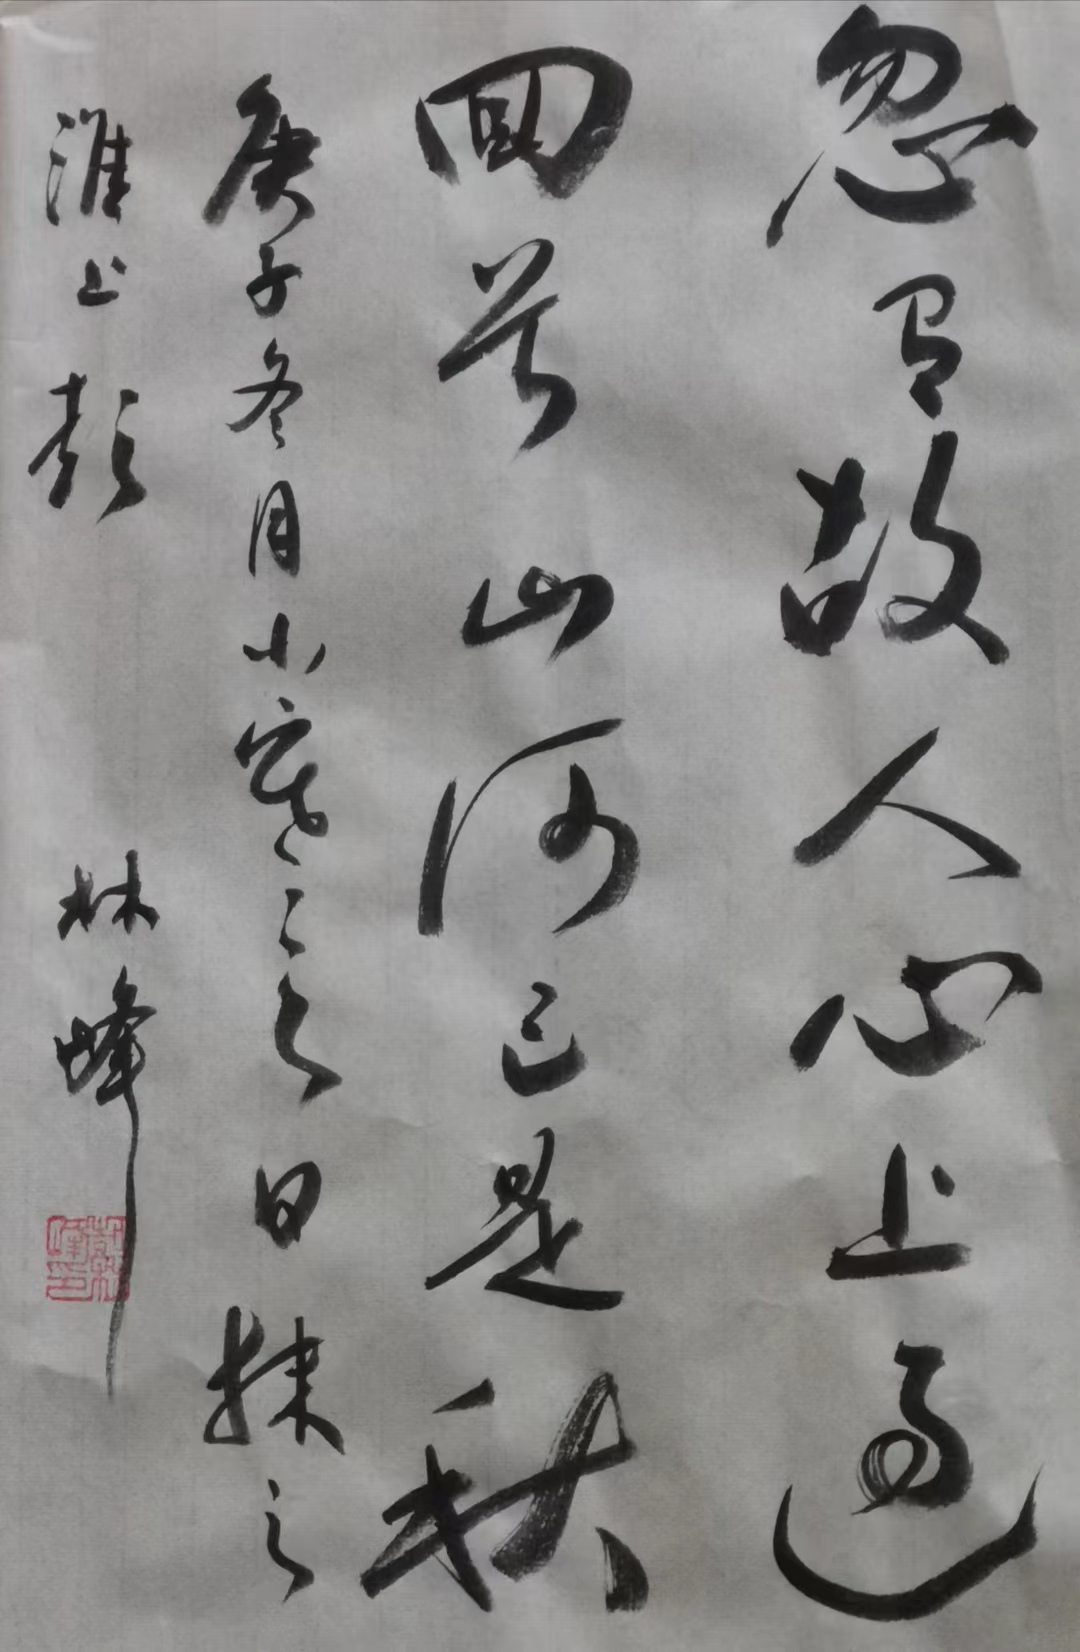 忽有故人心上過
回首山河已是秋
庚子冬月小寒之日抹之
淮上彭林峰
彭林峰印